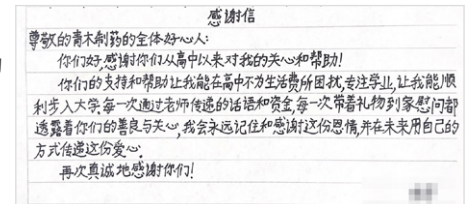 感谢信
尊敬的青木制药的全体好心人：
你们好，感谢你们从高中以来对我的关心和帮助！
你们的支持和帮助让我能在高中不为生活费所困扰，专注学业，让我能顺
利步入大学。每一次通过老师传递的话语和资金，每一次带着礼物到家慰问都
透露着你们的善良与关心，我会永远记住和感谢这份恩情，并在未来用自己的
方式传递这份爱心。
再次真诚地感谢你们！